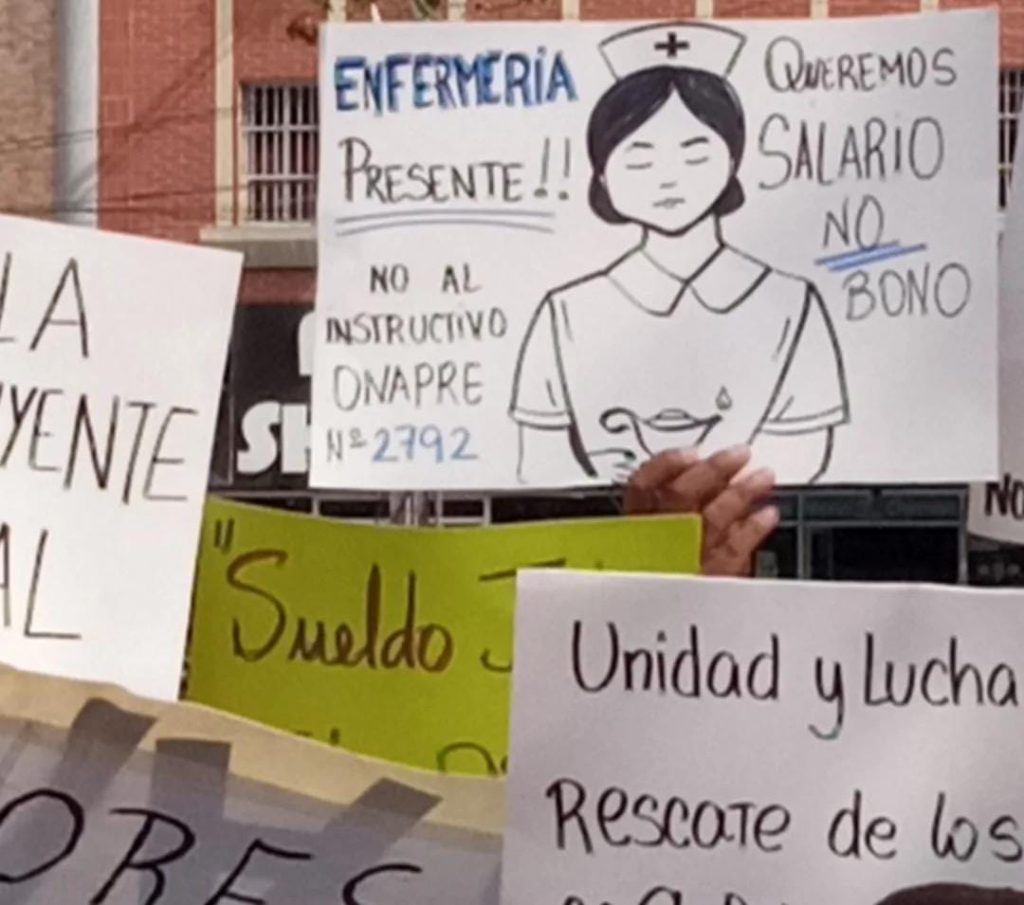 ENFERMERÍA
PRESENTE!!
NO AL
INSTRUCTIVO
ONAPRE
Nº 2792
QUEREMOS
SALARIO
NO
BONO
LA
YENTE
AL
"Sueldo
Unidad y Lucha
Rescate de los
ORES
SH
NO